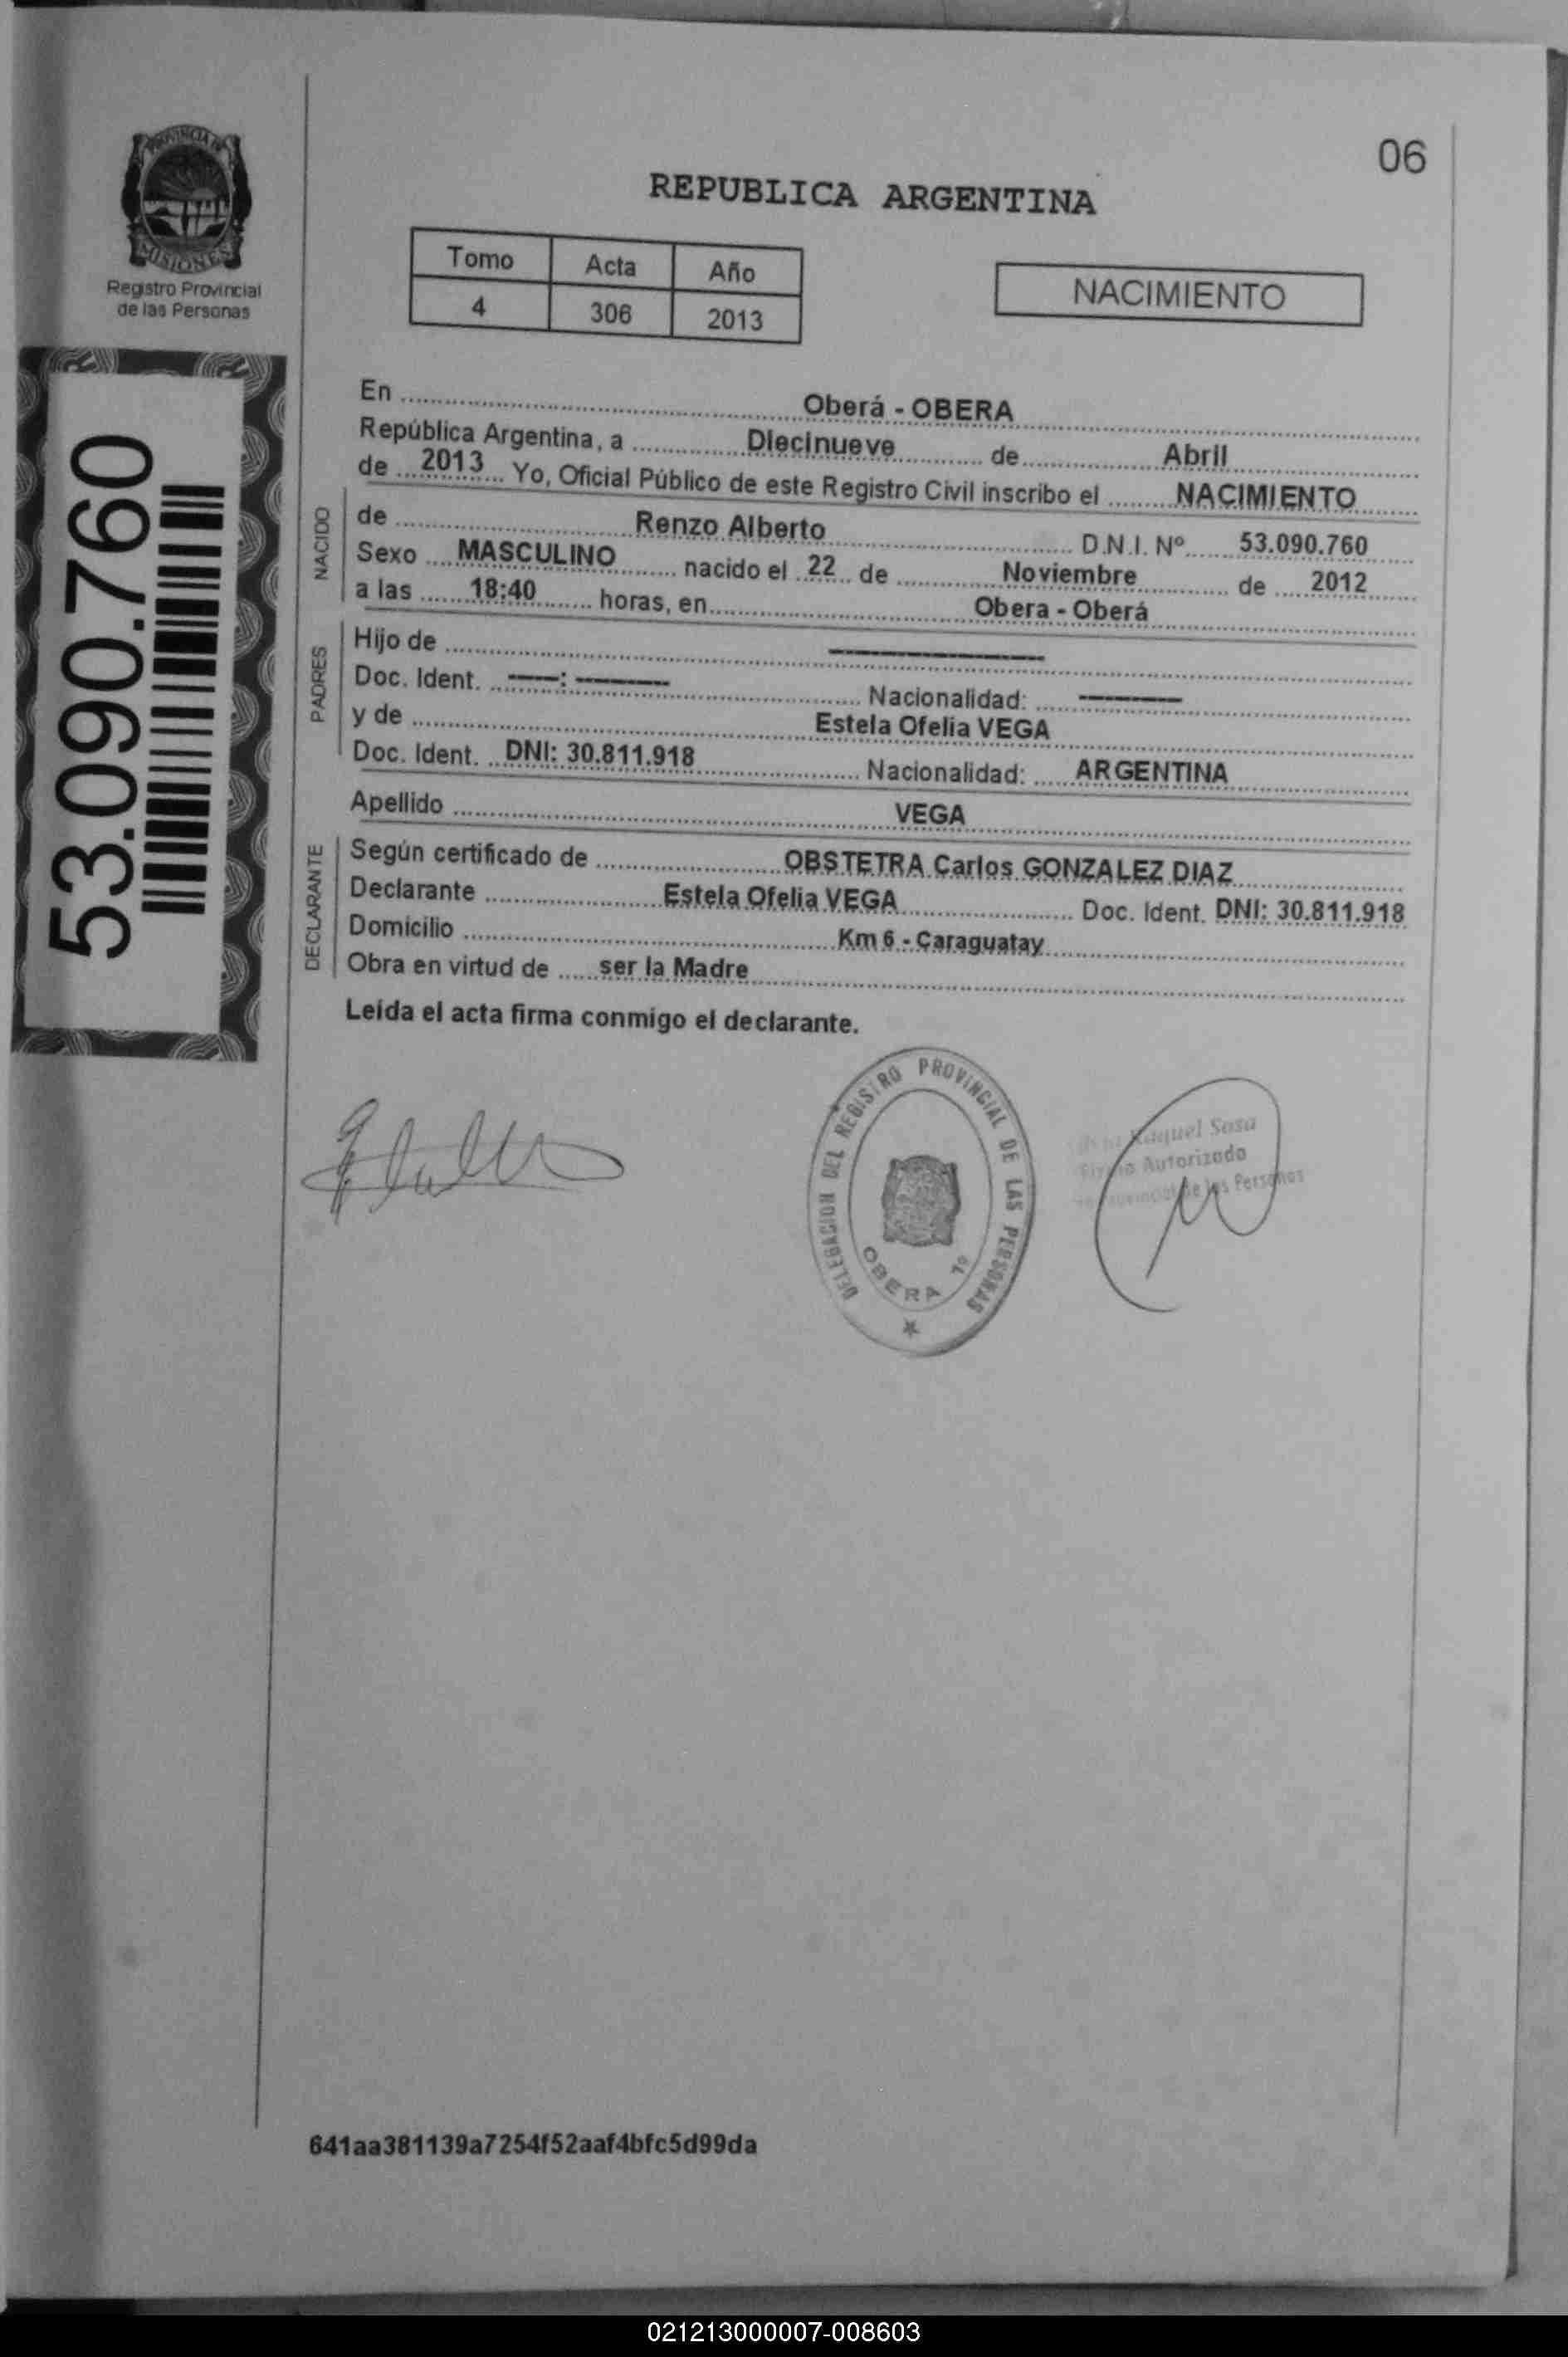 06
PROVINCIA DE
MISIONES
Registro Provincial
de las Personas
REPUBLICA ARGENTINA
Tomo Acta Año
4 306 2013
NACIMIENTO
53.090.760
En Oberá - OBERA
República Argentina, a Diecinueve de Abril
de 2013 Yo, Oficial Público de este Registro Civil inscribo el NACIMIENTO
NACIDO
de Renzo Alberto D.N.I. Nº 53.090.760
Sexo MASCULINO nacido el 22 de Noviembre de 2012
a las 18:40 horas, en Obera - Oberá
PADRES
Hijo de ----------
Doc. Ident. ----: -------- Nacionalidad: --------
y de Estela Ofelia VEGA
Doc. Ident. DNI: 30.811.918 Nacionalidad: ARGENTINA
Apellido VEGA
DECLARANTE
Según certificado de OBSTETRA Carlos GONZALEZ DIAZ
Declarante Estela Ofelia VEGA Doc. Ident. DNI: 30.811.918
Domicilio Km 6 - Caraguatay
Obra en virtud de ser la Madre
Leída el acta firma conmigo el declarante.
DELEGACION DEL REGISTRO PROVINCIAL DE LAS PERSONAS
OBERA 1º
Raquel Sosa
Firma Autorizada
de las Personas
641aa381139a7254f52aaf4bfc5d99da
021213000007-008603